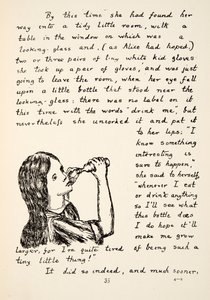 By this time she had found her
way into a tidy little room, with a
table in the window on which was a
looking-glass and, (as Alice had hoped)
two or three pairs of tiny white kid gloves:
she took up a pair of gloves, and was just
going to leave the room, when her eye fell
upon a little bottle that stood near the
looking-glass: there was no label on it
this time with the words "drink me," but
nevertheless she uncorked it and put it
to her lips: "I
know something
interesting is
sure to happen,"
she said to herself,
"whenever I eat
or drink anything
so I'll see what
this bottle does
I do hope it'll
make me grow
larger, for I'm quite tired of being such a
tiny little thing!"
It did so indeed, and much sooner.
33